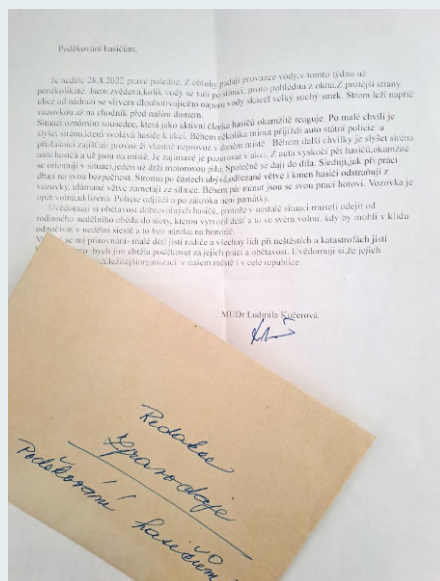 Poděkování hasičům.
Je neděle 28.8.2022 pravé poledne. Z oblohy padají provazce vody, v tomto týdnu už
poněkolikáté. Jsem zvědavá, kolik vody se valí po silnici, proto pohlednu z okna. Z protější strany
ulice od nádraží se vlivem dlouhotrvajícího náporu vody skácel velký suchý smrk. Strom leží napříč
vozovkou až na chodník před naším domem.
Situaci oznámím sousedce, která jako aktivní členka hasičů okamžitě reaguje. Po malé chvíli je
slyšet sirénu, která svolává hasiče k akci. Během několika minut přijíždí auto státní policie a
příslušníci zajišťují provoz či vlastně neprovoz v daném místě. Během další chvilky je slyšet siréna
auta hasičů a už jsou na místě. Je zajímavé je pozorovat v akci. Z auta vyskočí pět hasičů, okamžitě
se orientují v situaci, jeden už drží motorovou pilu. Společně se dají do díla. Sleduji, jak při práci
dbají na svou bezpečnost. Stromu po částech ubývá, odřezané větve i kmen hasiči odstraňují z
vozovky, ulámané větve zametají ze silnice. Během pár minut jsou se svou prací hotovi. Vozovka je
opět volná, uklizená. Policie odjíždí a po zákroku není památky.
Uvědomuji si obětavost dobrovolných hasičů, protože v nastalé situaci museli odejít od
rodinného nedělního oběda do sloty, kterou vytvořil déšť a to ve svém volnu, kdy by mohli v klidu
odpočívat v nedělní siestě a to bez nároku na honorář.
se mi přirovnání- malé děti jistí rodiče a všechny lidi při neštěstích a katastrofách jistí
bych jim chtěla poděkovat za jejich práci a obětavost. Uvědomuji si, že jejich
organizací v našem městě i v celé republice.
MUDr Ludmila Kučerová
Redakce
zpravodaje
Poděkování hasičům